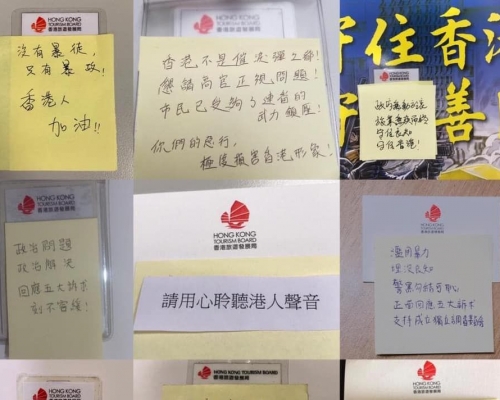 HONG KONG
TOURISM BOARD
香港旅遊發展局
沒有暴徒,
只有暴政!
香港人
加油!!
HONG KONG
TOURISM BOARD
香港旅遊發展局
香港不是催淚彈之都!
懇請高官正視問題!
市民已受夠了連番的
武力鎮壓!
你們的惡行,
極度損害香港形象!
守住香港
善
守住良知
守住香港!
HONG KONG
TOURISM BOARD
香港旅遊發展局
政治問題
政治解決
回應五大訴求
刻不容緩!
HONG KONG
TOURISM BOARD
香港旅遊發展局
請用心聆聽港人聲音
HONG KONG
TOURISM BOARD
香港旅遊發展局
濫用暴力
埋沒良知
警黑勾結
正面回應五大訴求
支持成立獨立調查委員會
HONG KONG
TOURISM BOARD
HONG KONG TOURISM BOARD
香港旅遊發展局
HONG KONG
TOURISM BOARD